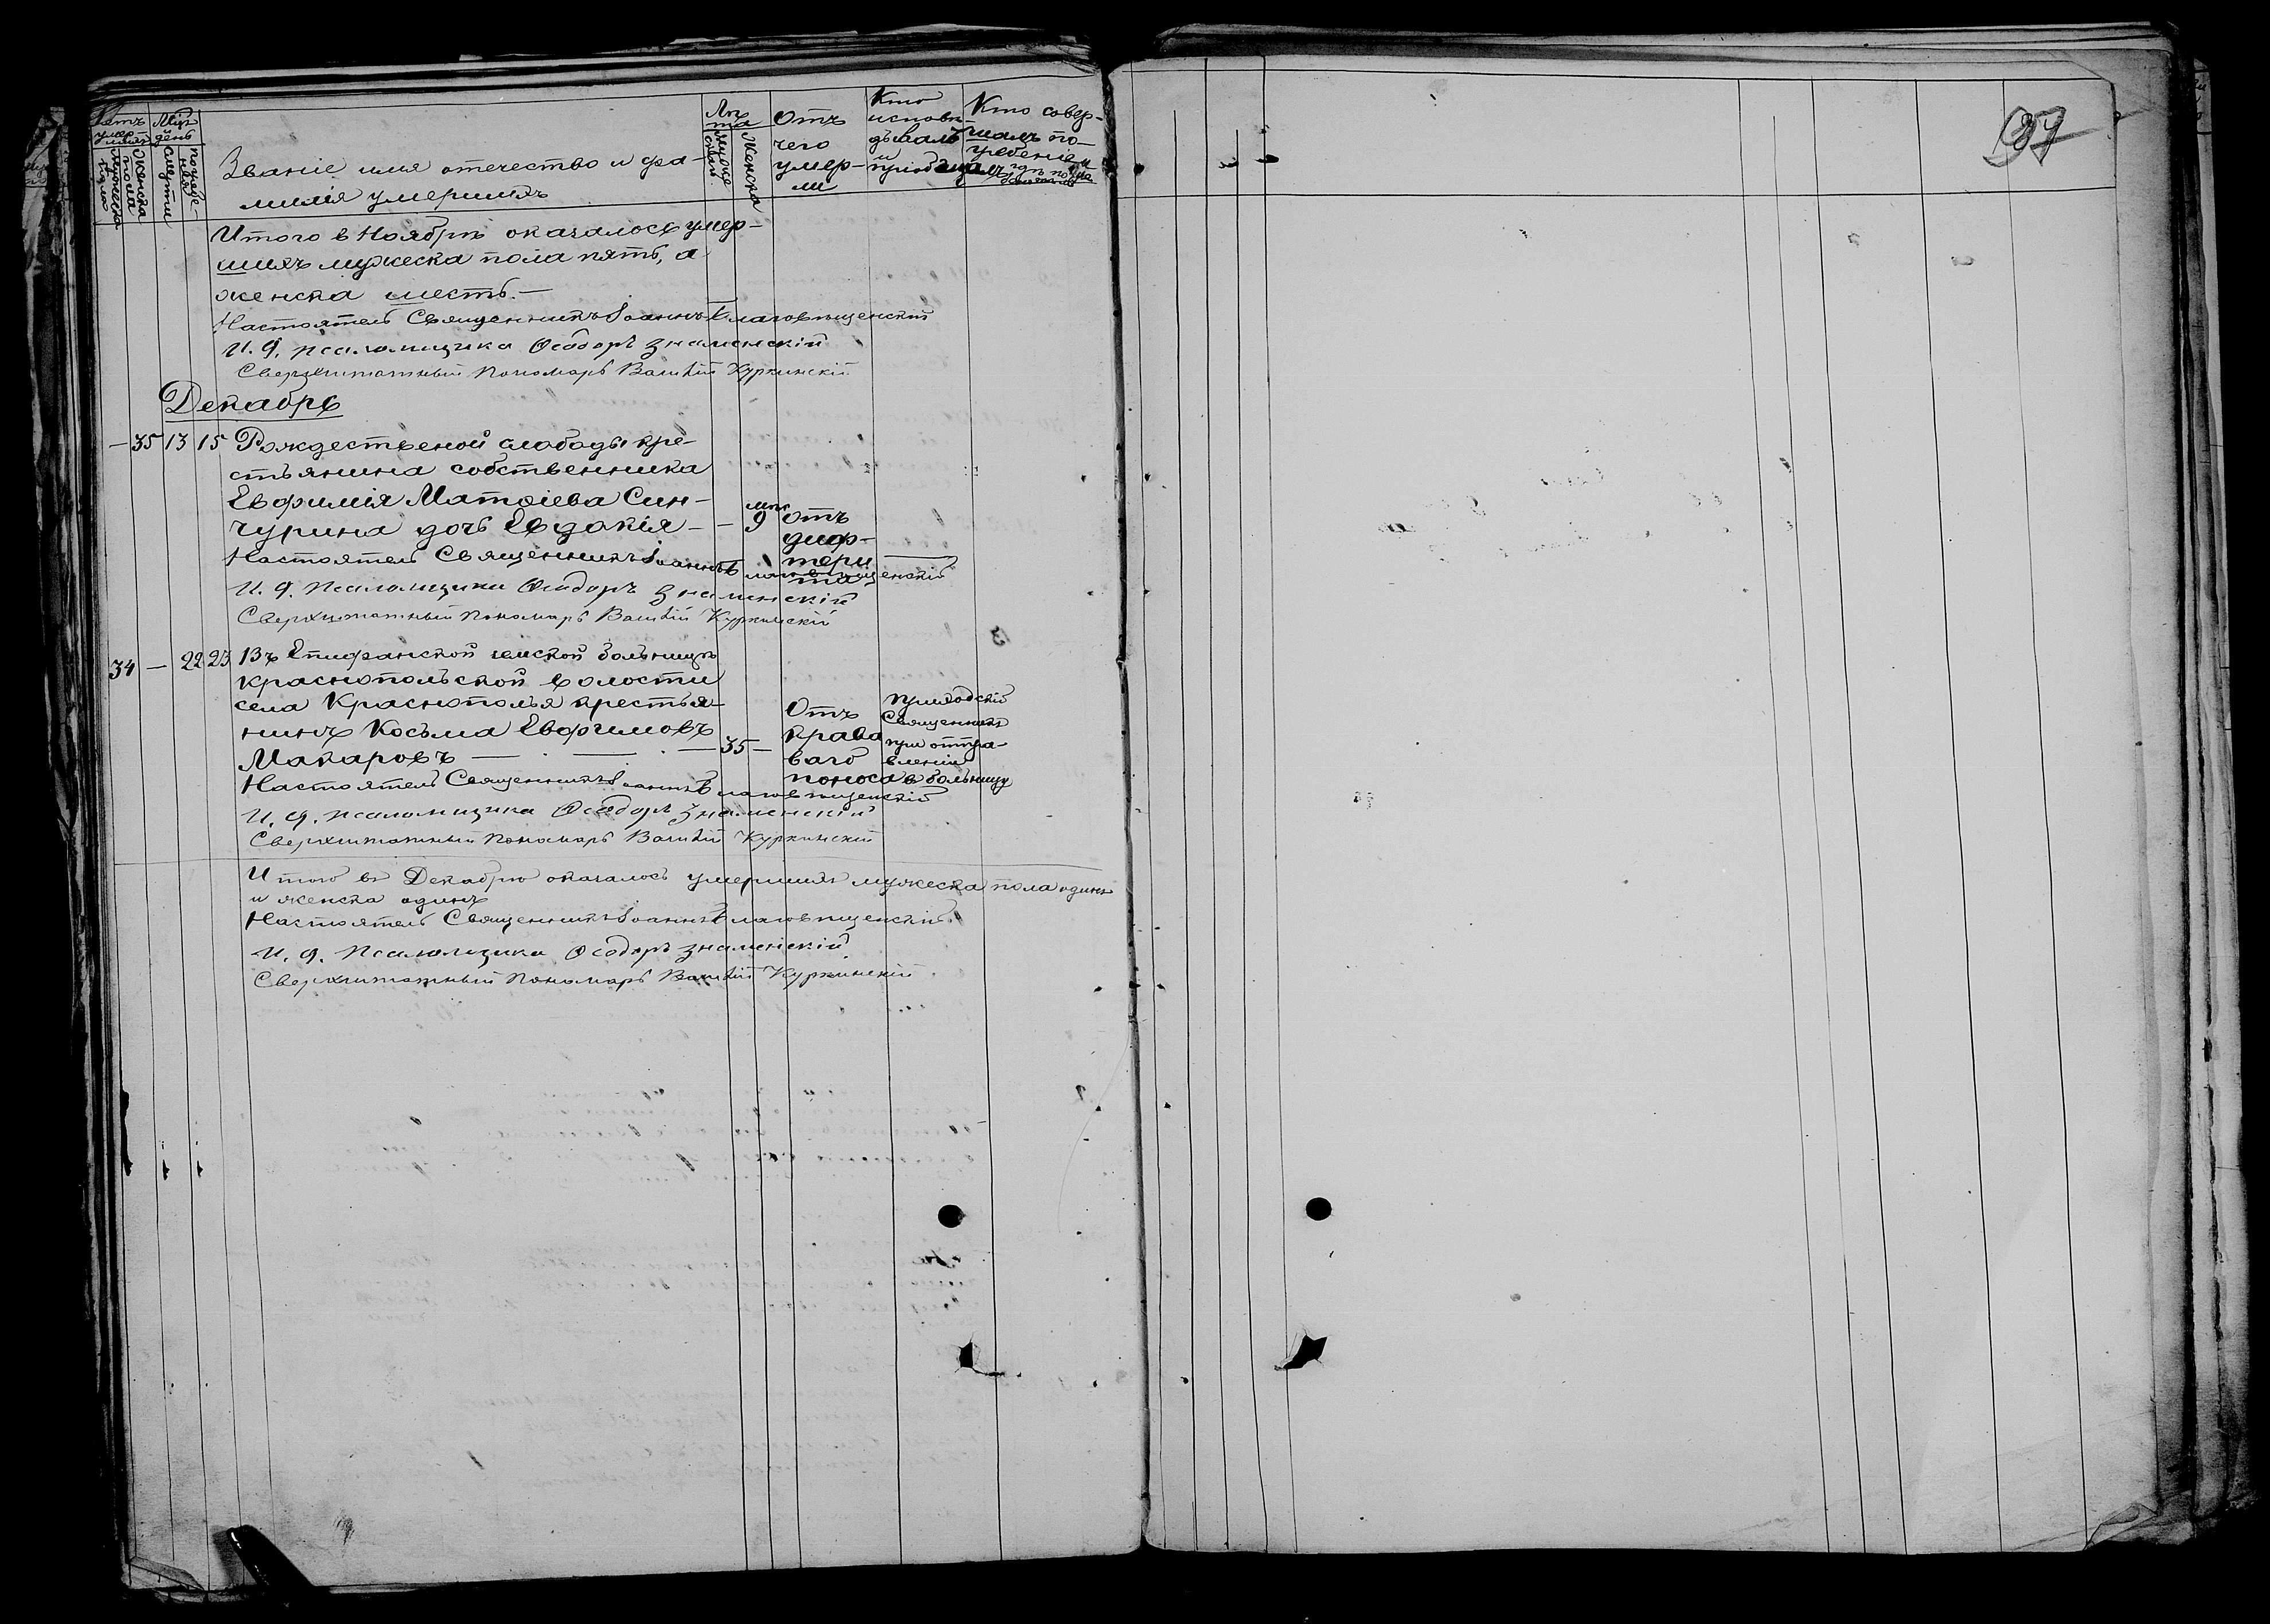 Счетъ умер-шихъ
Мужеска пола
Женска пола
Мцъ день
Смерти
Погребе-нія
Званіе имя отечество и фа-
милія умершихъ
Лѣ-та
Мужеск.
Женска
Отъ
чего
умер-
ли
Кто
исповѣ-
дывалъ
и
пріобщалъ
Кто совер-
шалъ по-
гребеніе и
гдѣ по-
Итого в Ноябрѣ оказалось умер-
шихъ мужеска пола пять, а
женска шесть.—
Настоятель Священникъ Іоаннъ Благовѣщенскій
И. д. псаломщика Ѳеодоръ Знаменскій
Сверхштатный Пономарь Василій Куркинскій
Декабрь
— 35 13 15 Рождественой слободы кре-
стьянина собственника
Евфимія Матѳіева Син-
чурина дочь Евдокія — — 9 мѣс
отъ
диф-
тери
та
Настоятель Священникъ Іоаннъ Благовѣщенскій
И. д. Псаломщика Ѳеодоръ Знаменскій
Сверхштатный Пономарь Василій Куркинскій
34 — 22 23 Въ Епифанской земской больницѣ
Краснопольской волости
села Краснополья крестья-
нинъ Косьма Евфимовъ
Макаровъ — — — 35 —
Отъ
крова
ваго
поноса
приходскій
Священникъ
при отпра-
вленіи
в больницу
Настоятель Священникъ Іоаннъ Благовѣщенскій
И. д. псаломщика Ѳеодоръ Знаменскій
Сверхштатный Пономарь Василій Куркинскій
Итого въ Декабрѣ оказалось умершихъ мужеска пола одинъ
и женска одинъ
Настоятель Священникъ Іоаннъ Благовѣщенскій
И. д. Псаломщика Ѳеодоръ Знаменскій
Сверхштатный Пономарь Василій Куркинскій